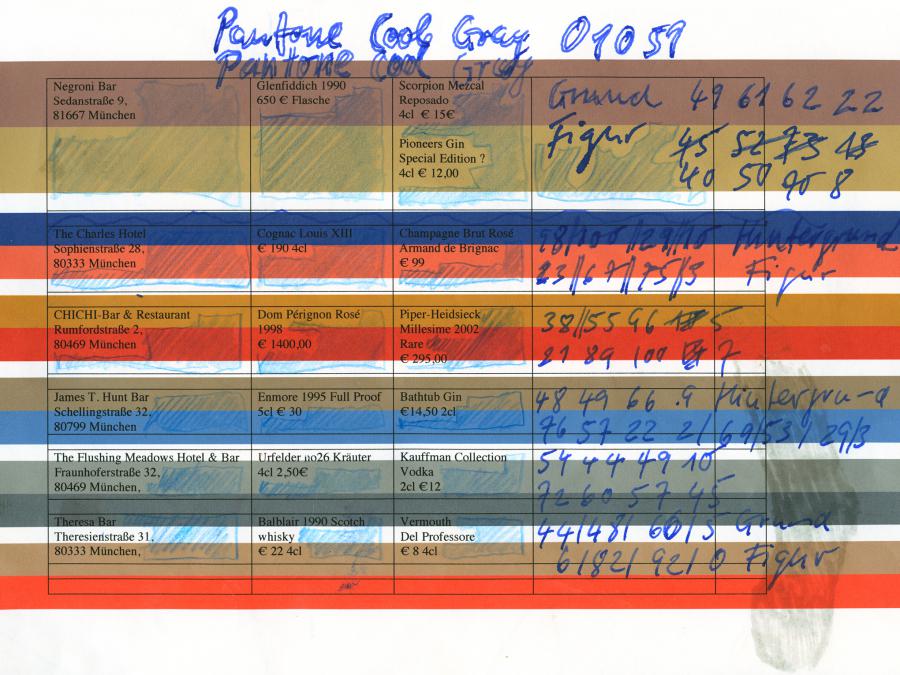 Pantone Cool Gray 01051
Pantone Cool Gray
Negroni Bar
Sedanstraße 9,
81667 München
Glenfiddich 1990
650 € Flasche
Scorpion Mezcal
Reposado
4cl € 15€
Pioneers Gin
Special Edition ?
4cl € 12,00
Grund 49 61 62 22
Figur 45 52 73 18
40 50 70 8
The Charles Hotel
Sophienstraße 28,
80333 München
Cognac Louis XIII
€ 190 4cl
Champagne Brut Rosé
Armand de Brignac
€ 99
98/100//29/15 Hintergrund
23//67//75//3 Figur
CHICHI-Bar & Restaurant
Rumfordstraße 2,
80469 München
Dom Pérignon Rosé
1998
€ 1400,00
Piper-Heidsieck
Millesime 2002
Rare
€ 295,00
38//55 96 5
21 89 100 7
James T. Hunt Bar
Schellingstraße 32,
80799 München
Enmore 1995 Full Proof
5cl € 30
Bathtub Gin
€14,50 2cl
48 49 66 .9 Hintergrund
76 57 22 2/ 69/53/ 29/3
The Flushing Meadows Hotel & Bar
Fraunhoferstraße 32,
80469 München,
Urfelder no26 Kräuter
4cl 2,50€
Kauffman Collection
Vodka
2cl €12
54 44 49 15
72 60 57 45
Theresa Bar
Theresienstraße 31,
80333 München,
Balblair 1990 Scotch
whisky
€ 22 4cl
Vermouth
Del Professore
€ 8 4cl
44/48/ 60/5 Grund
6/82/ 92/0 Figur